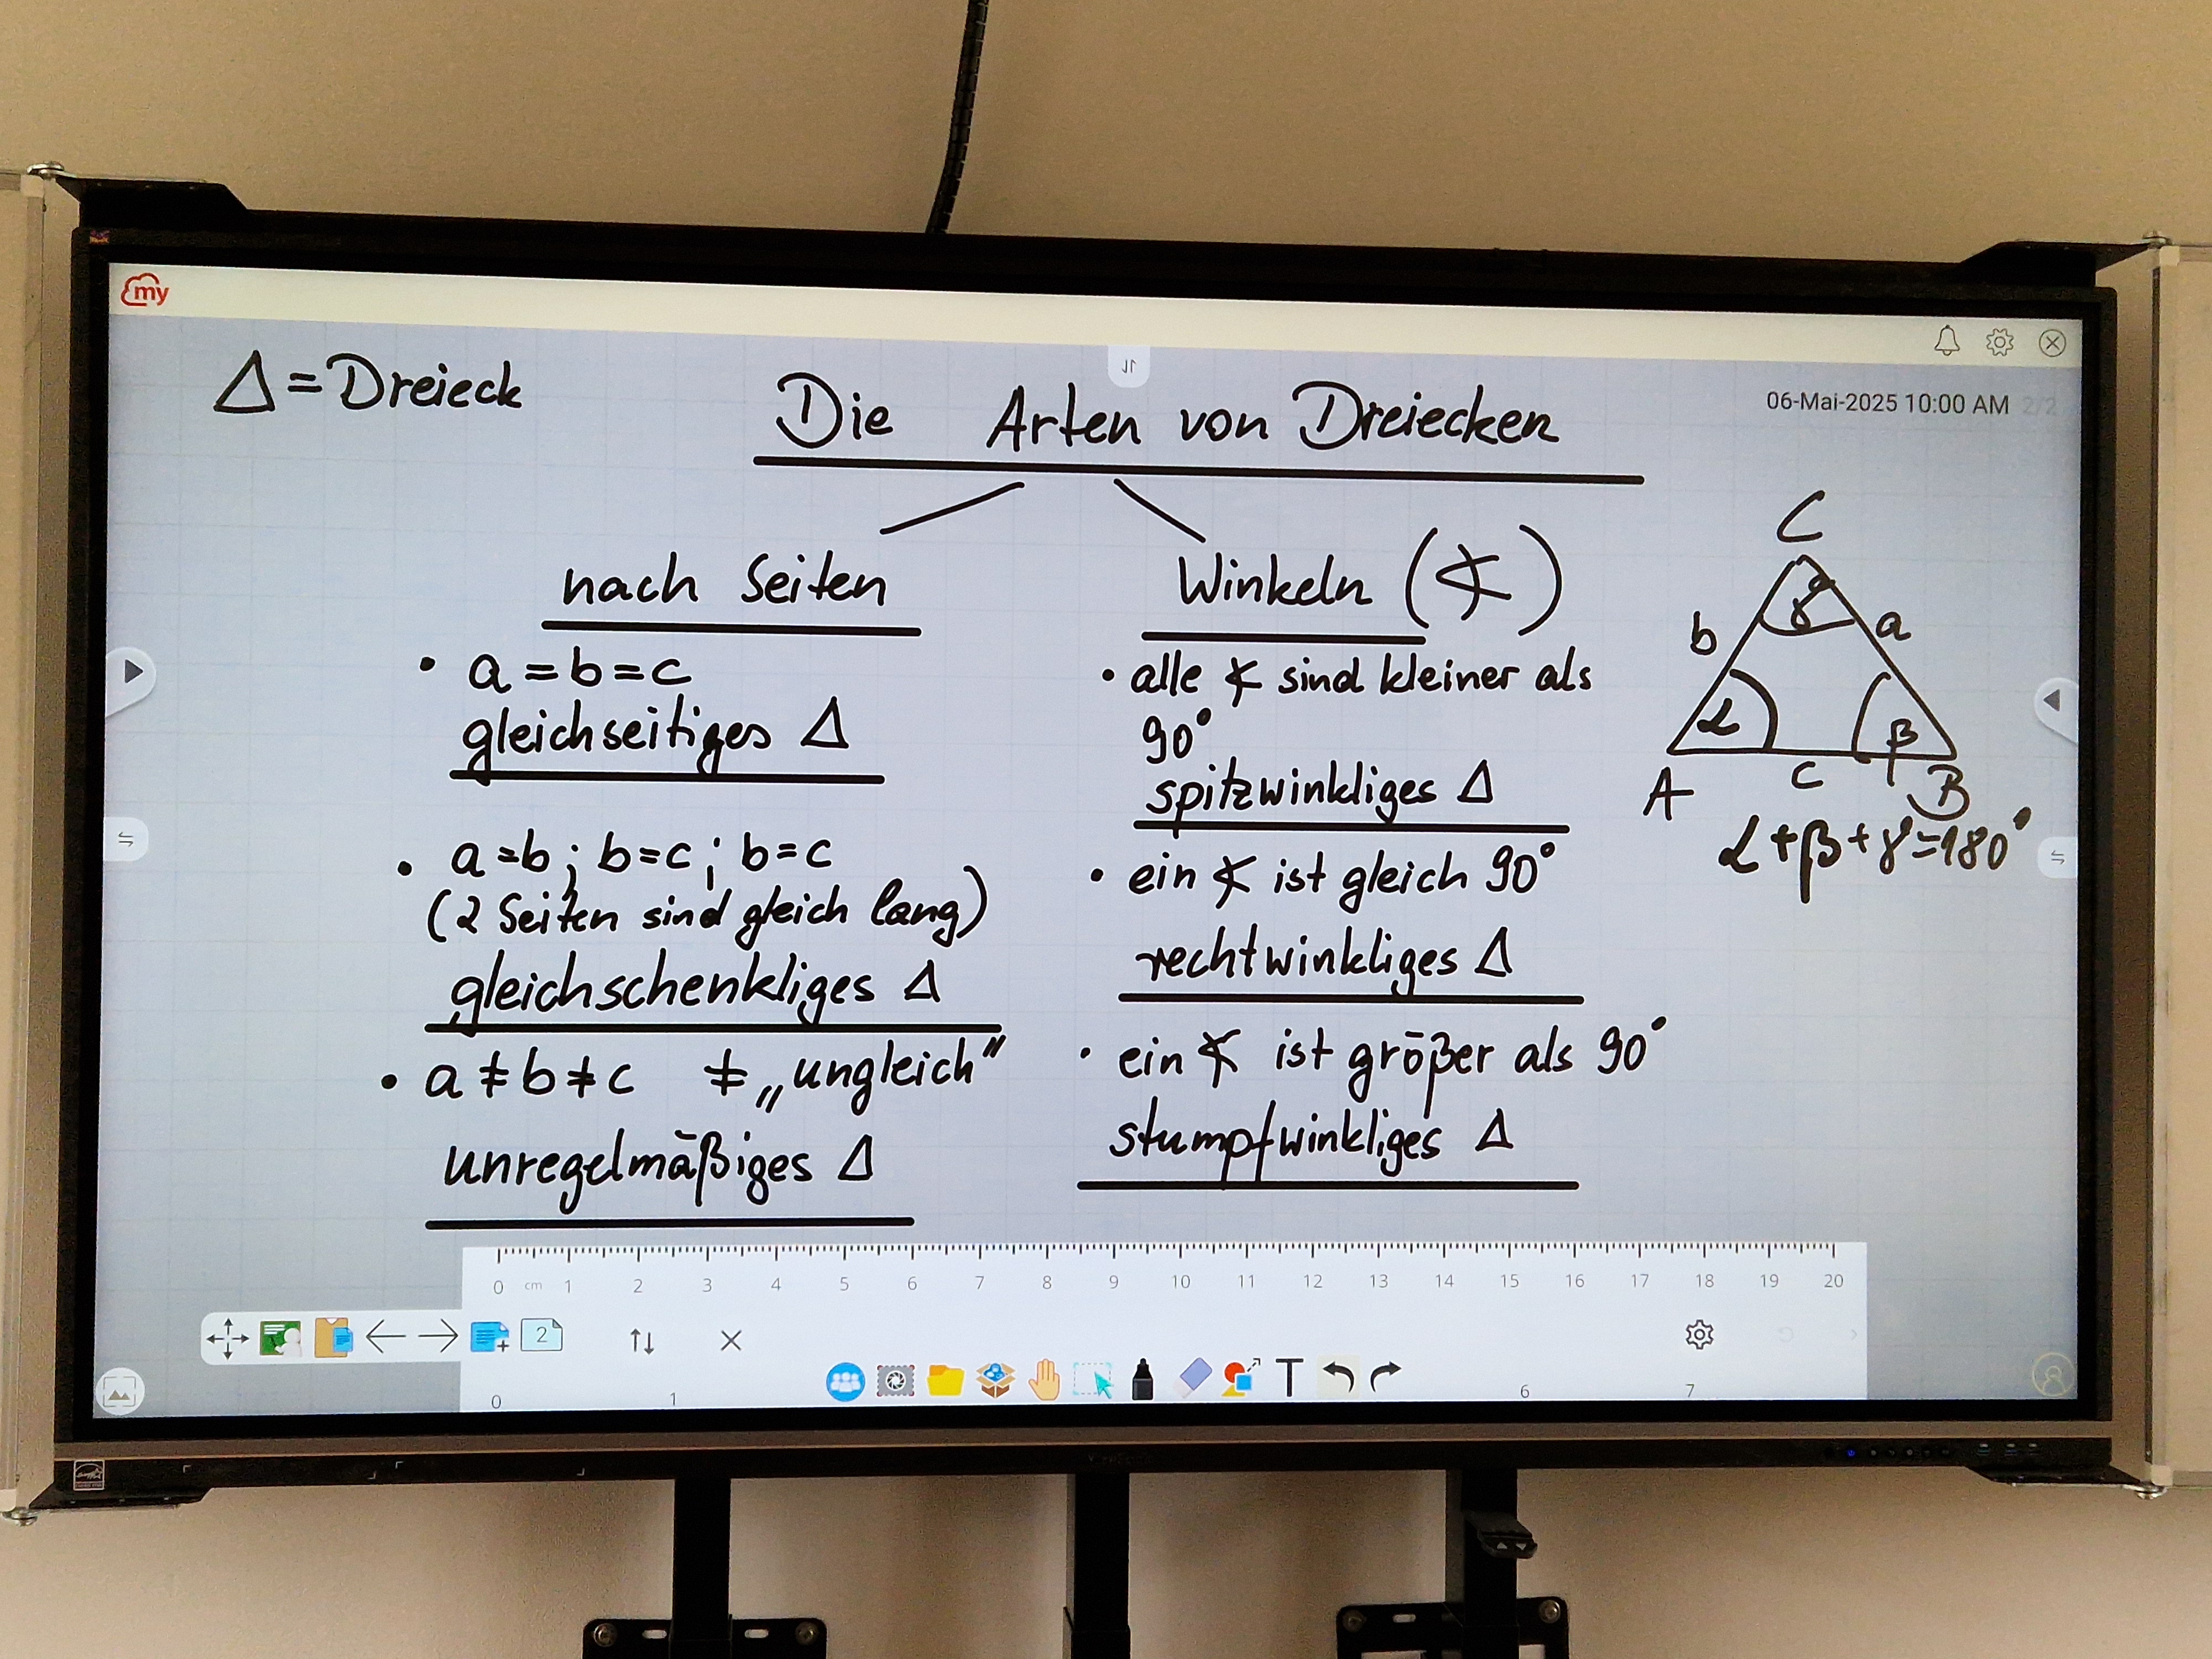 my
Δ = Dreieck
Die Arten von Dreiecken
06-Mai-2025 10:00 AM 2/2
nach Seiten
• a = b = c
gleichseitiges Δ
• a = b ; b = c ; b = c
(2 Seiten sind gleich lang)
gleichschenkliges Δ
• a ≠ b ≠ c ≠ „ungleich"
unregelmäßiges Δ
Winkeln (∢)
• alle ∢ sind kleiner als
90°
spitzwinkliges Δ
• ein ∢ ist gleich 90°
rechtwinkliges Δ
• ein ∢ ist größer als 90°
stumpfwinkliges Δ
C
b γ a
α β
A c B
α + β + γ = 180°
0 cm 1 2 3 4 5 6 7 8 9 10 11 12 13 14 15 16 17 18 19 20
2
T
0 1 6 7